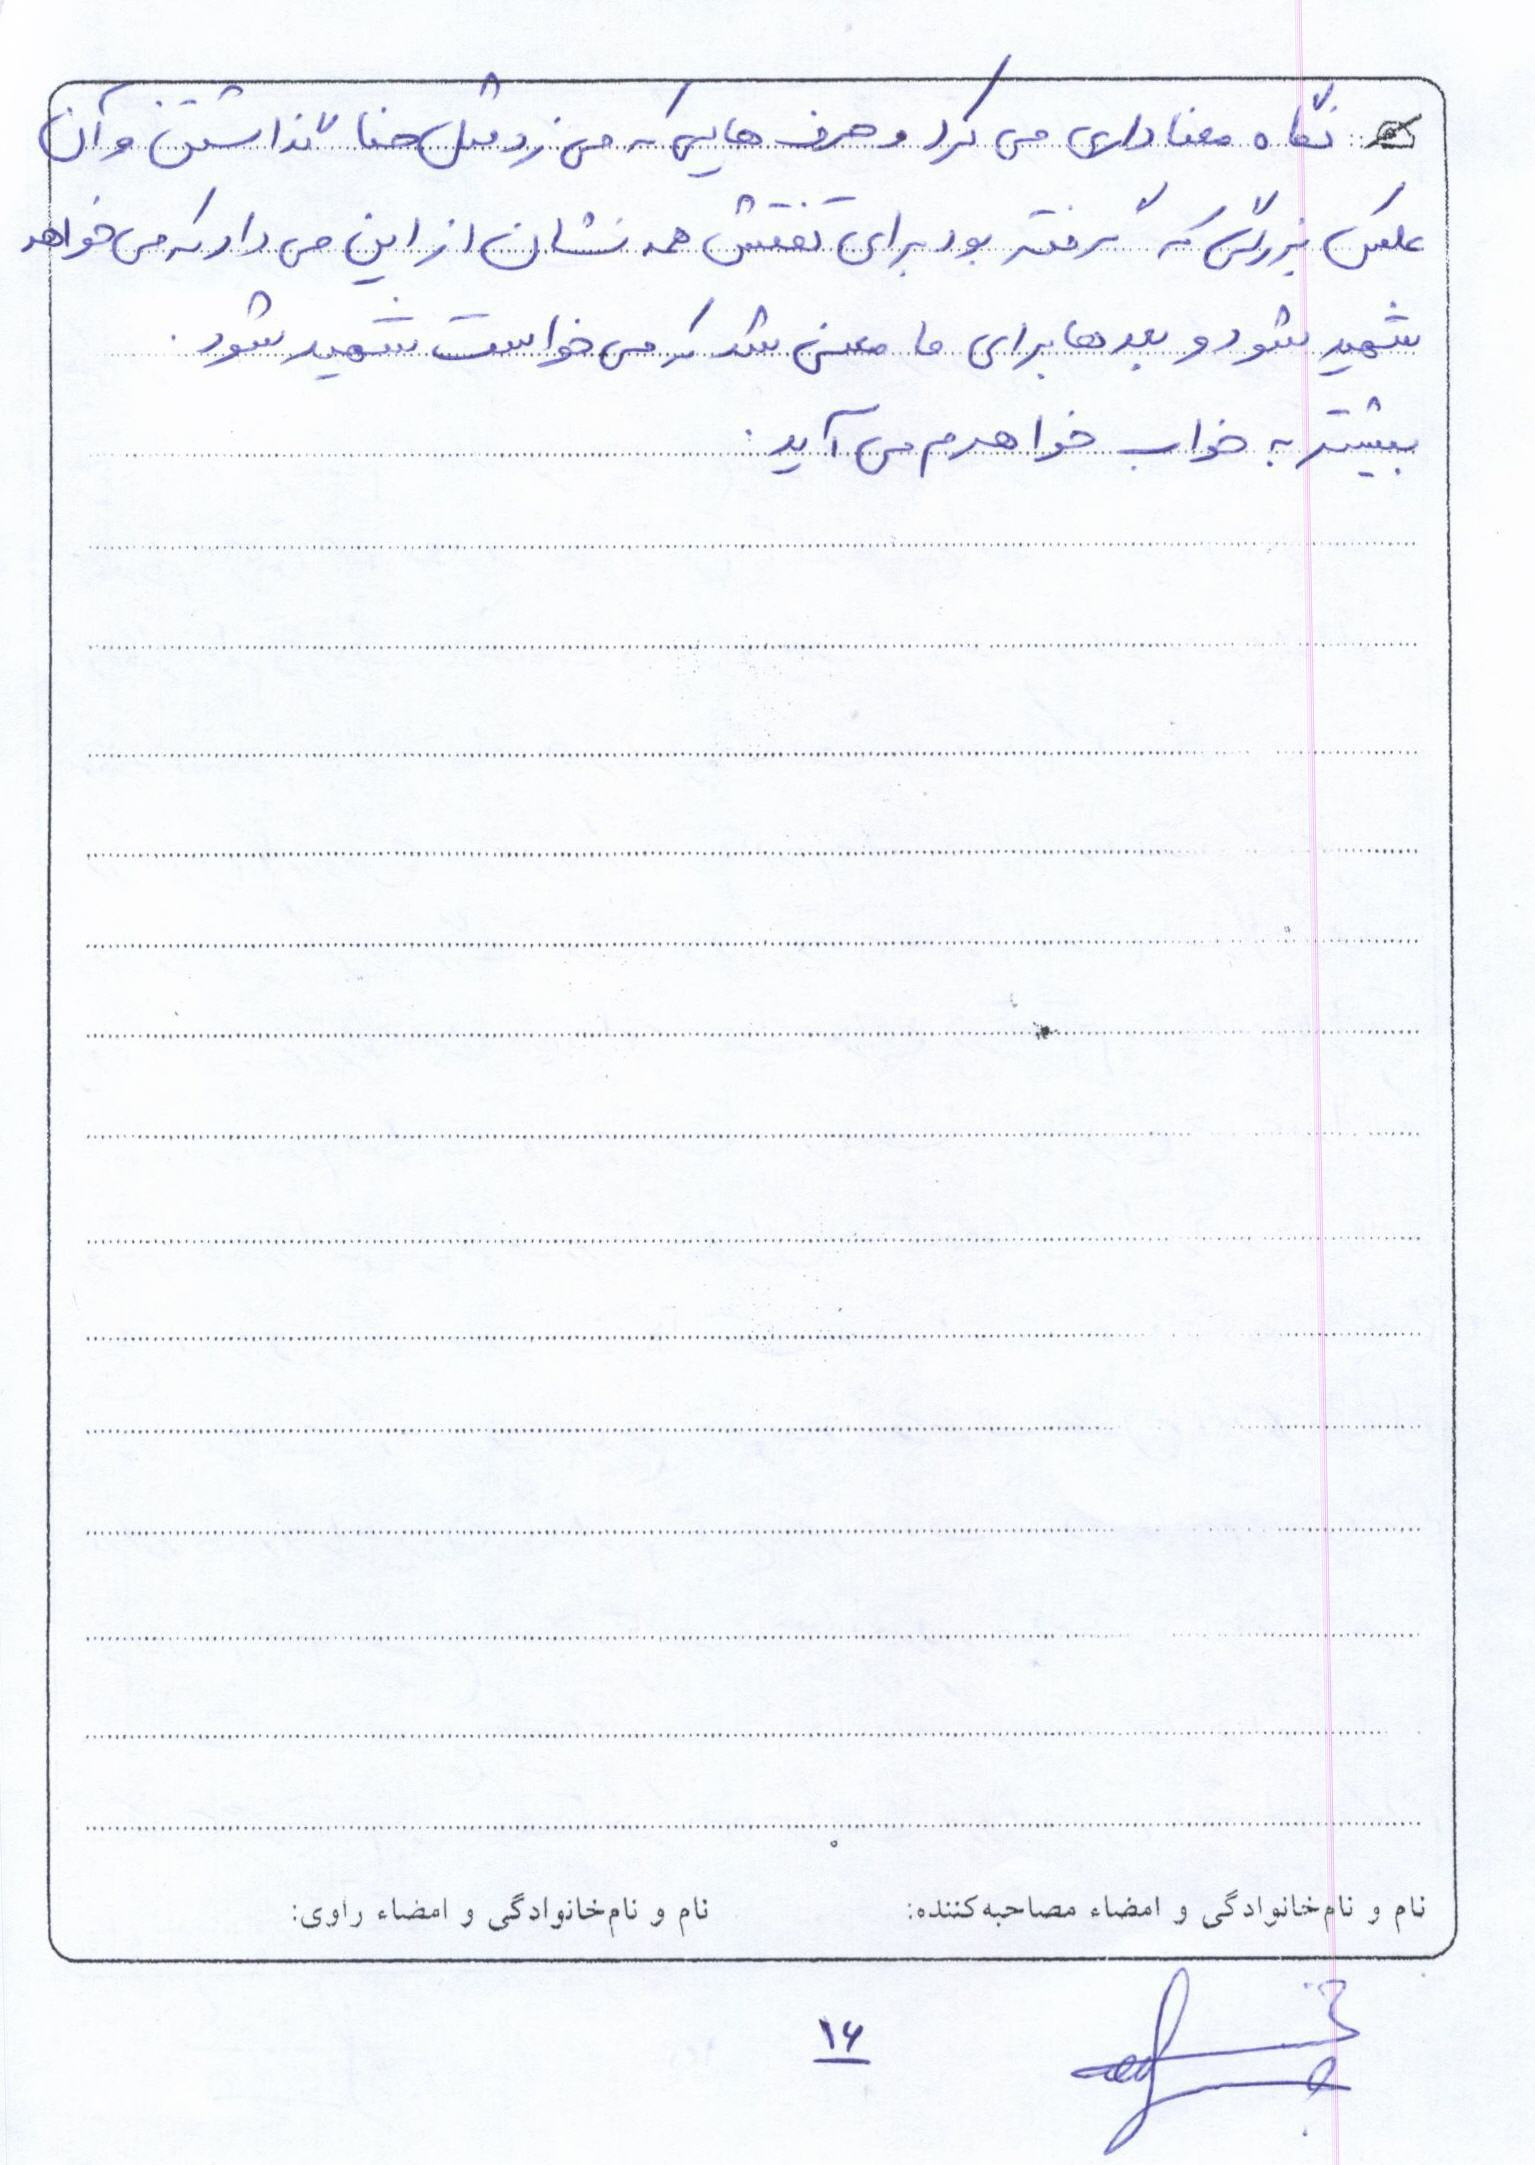 نگاه معناداری می کرد و حرف هایی که می زد مثل حنا گذاشتن و آن
عکس بزرگی که گرفته بود برای همه نشان از این می داد که می خواهد
شهید شود و بعدها برای ما معنی شد که می خواست شهید شود.
بیشتر به خواب خواهرم می آید.
نام و نام‌خانوادگی و امضاء مصاحبه‌کننده:
نام و نام‌خانوادگی و امضاء راوی:
۱۶